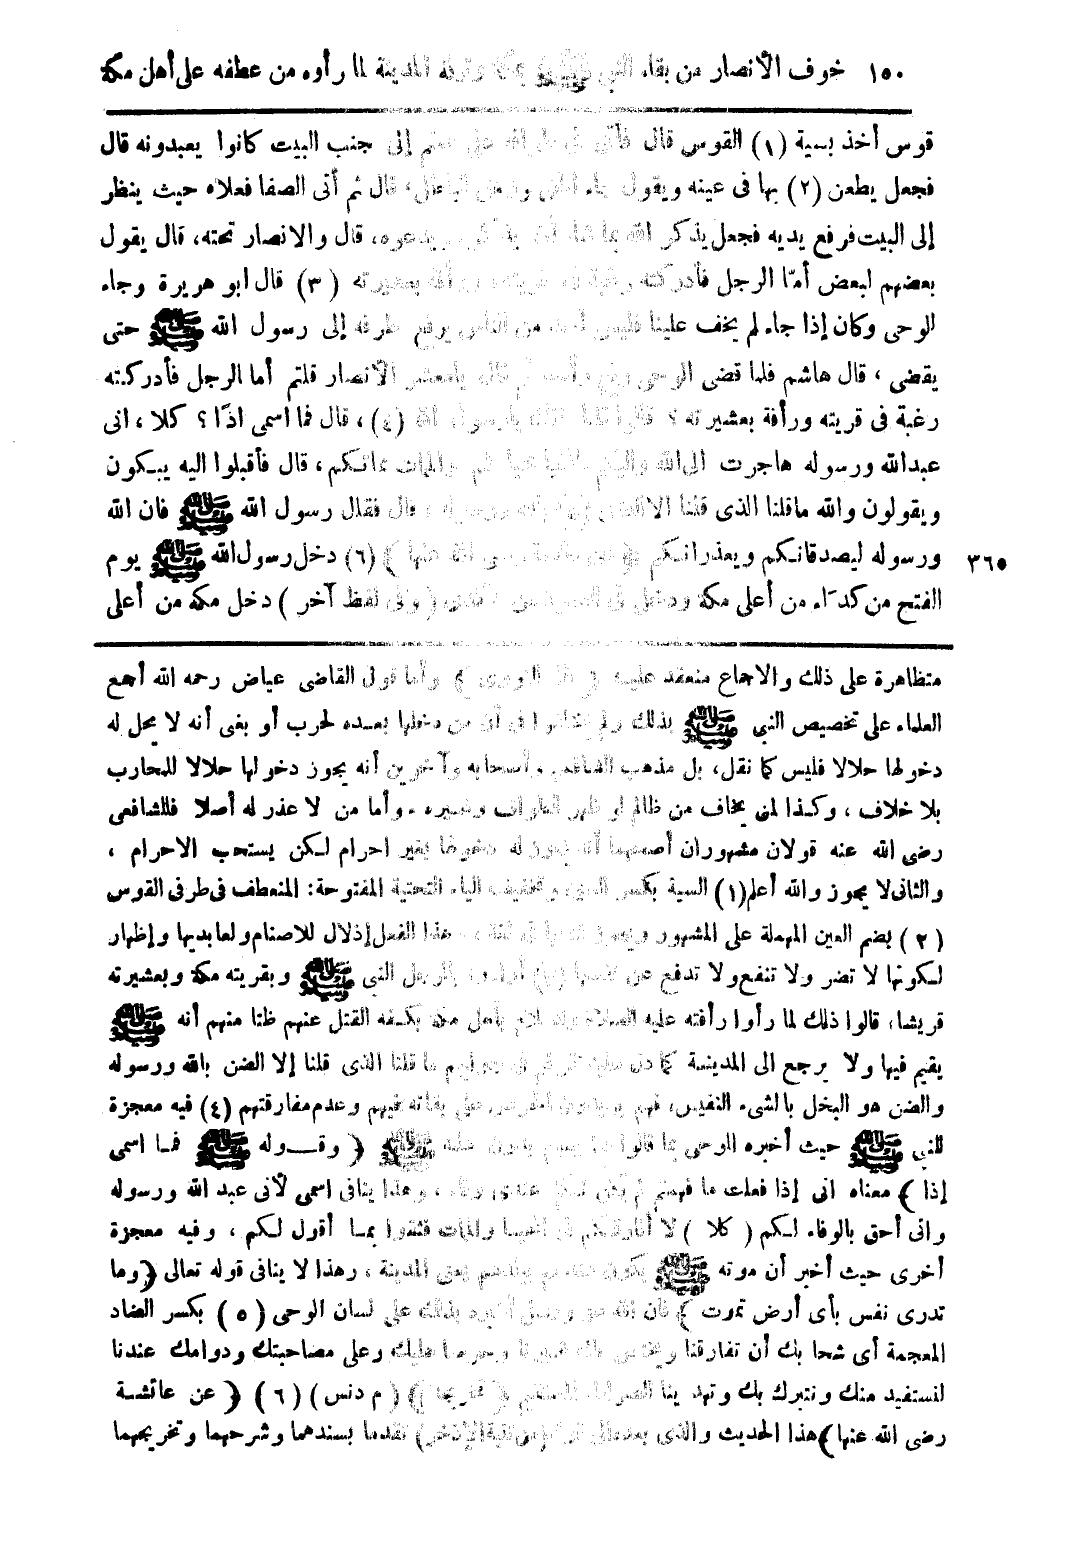 ١٥٠ خوف الأنصار من بقاء النبي ﷺ بمكة وتركه المدينة لما رأوه من عطفه على أهل مكة
قوس أخذ بسية (١) القوس قال فأتى في طوافه على صنم إلى جنب البيت كانوا يعبدونه قال
فجعل يطعن (٢) بها فى عينه ويقول جاء الحق وزهق الباطل، قال ثم أتى الصفا فعلاه حيث ينظر
إلى البيت فرفع يديه فجعل يذكر الله بما شاء أن يذكره ويدعوه، قال والانصار تحته، قال يقول
بعضهم لبعض أمّا الرجل فأدركته رغبة فى قريته ورأفة بعشيرته (٣) قال ابو هريرة وجاء
الوحى وكان إذا جاء لم يخف علينا فليس أحد من الناس يرفع طرفه إلى رسول الله ﷺ حتى
يقضى ، قال هاشم فلما قضى الوحى رفع رأسه ثم قال يامعشر الأنصار قلتم أما الرجل فأدركته
رغبة فى قريته ورأفة بعشيرته ؟ قالوا قلنا ذلك يارسول الله (٤) ، قال فما اسمى اذًا ؟ كلا ، انى
عبدالله ورسوله هاجرت الى الله واليكم فالمحيا محياكم والممات مماتكم ، قال فأقبلوا اليه يبكون
ويقولون والله ماقلنا الذى قلنا الا الضن بالله ورسوله ، قال فقال رسول الله ﷺ فان الله
ورسوله ليصدقانكم ويعذرانكم ﴿ عن عائشة رضى الله عنها ﴾ (٦) دخل رسول الله ﷺ يوم ٣٦٥
الفتح من كدَاء من أعلى مكة ودخل فى العمرة من كدى (وفى لفظ آخر) دخل مكة من أعلى
متظاهرة على ذلك والاجماع منعقد عليه ﴿ قال النووى ﴾ وأما قول القاضى عياض رحمه الله أجمع
العلماء على تخصيص النبي ﷺ بذلك ولم يختلفوا فى أن من دخلها بعده لحرب أو بغى أنه لا يحل له
دخولها حلالا فليس كما نقل، بل مذهب الشافعى وأصحابه وآخرين أنه يجوز دخولها حلالا للمحارب
بلا خلاف ، وكذا لمن يخاف من ظالم لو ظهر للطواف وغيره ، وأما من لا عذر له أصلا فللشافعى
رضى الله عنه قولان مشهوران أصحهما أنه يجوز له دخولها بغير احرام لكن يستحب الاحرام ،
والثانى لا يجوز والله أعلم (١) السية بكسر السين وتخفيف الياء التحتية المفتوحة: المنعطف فى طرفى القوس
(٢) بضم العين المهملة على المشهور ويجوز فتحها فى لغة ، وهذا الفعل إذلال للاصنام ولعابديها وإظهار
لكونها لا تضر ولا تنفع ولا تدفع عن نفسها (٣) أرادوا بالرجل النبي ﷺ وبقريته مكة وبعشيرته
قريشا، قالوا ذلك لما رأوا رأفته عليه الصلاة والسلام بأهل مكة بكفه القتل عنهم ظنا منهم أنه ﷺ
يقيم فيها ولا يرجع الى المدينة كما دل عليه قولهم فى جوابهم ما قلنا الذى قلنا إلا الضن بالله ورسوله
والضن هو البخل بالشىء النفيس، فهم يريدون الحرص على بقائه فيهم وعدم مفارقتهم (٤) فيه معجزة
للنبى ﷺ حيث أخبره الوحى بما قالوا ﷺ ﴿ وقوله ﷺ فما اسمى
إذا ﴾ معناه انى إذا فعلت ما فهمتم لم يكن لى عندى وفاء ، وهذا ينافى اسمى لأنى عبد الله ورسوله
وانى أحق بالوفاء لكم ( كلا ) لا أفارقكم فى المحيا والممات فثقوا بما أقول لكم ، وفيه معجزة
أخرى حيث أخبر أن موته ﷺ يكون عندهم يعنى المدينة ، وهذا لا ينافى قوله تعالى ﴿وما
تدرى نفس بأى أرض تموت ﴾ فان الله عز وجل أخبره بذلك على لسان الوحى (٥) بكسر الضاد
المعجمة أى شحا بك أن تفارقنا ويختص بك غيرنا وحرصا عليك وعلى مصاحبتك ودوامك عندنا
لنستفيد منك ونتبرك بك وتهدينا الصراط المستقيم ﴿ تخريجه ﴾ (م دنس) (٦) ﴿ عن عائشة
رضى الله عنها ﴾ هذا الحديث والذى بعده تقدما بسندهما وشرحهما وتخريجهما